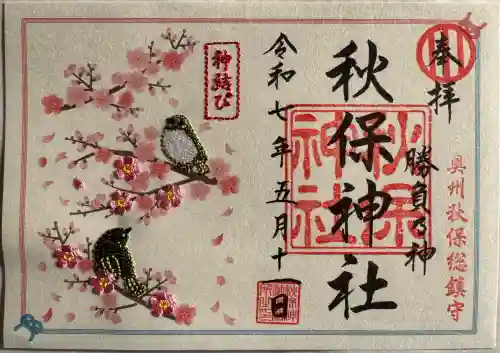 奉拝
奥州秋保総鎮守
勝負の神
秋保神社
秋保
神社
令和七年五月十一日
神結び